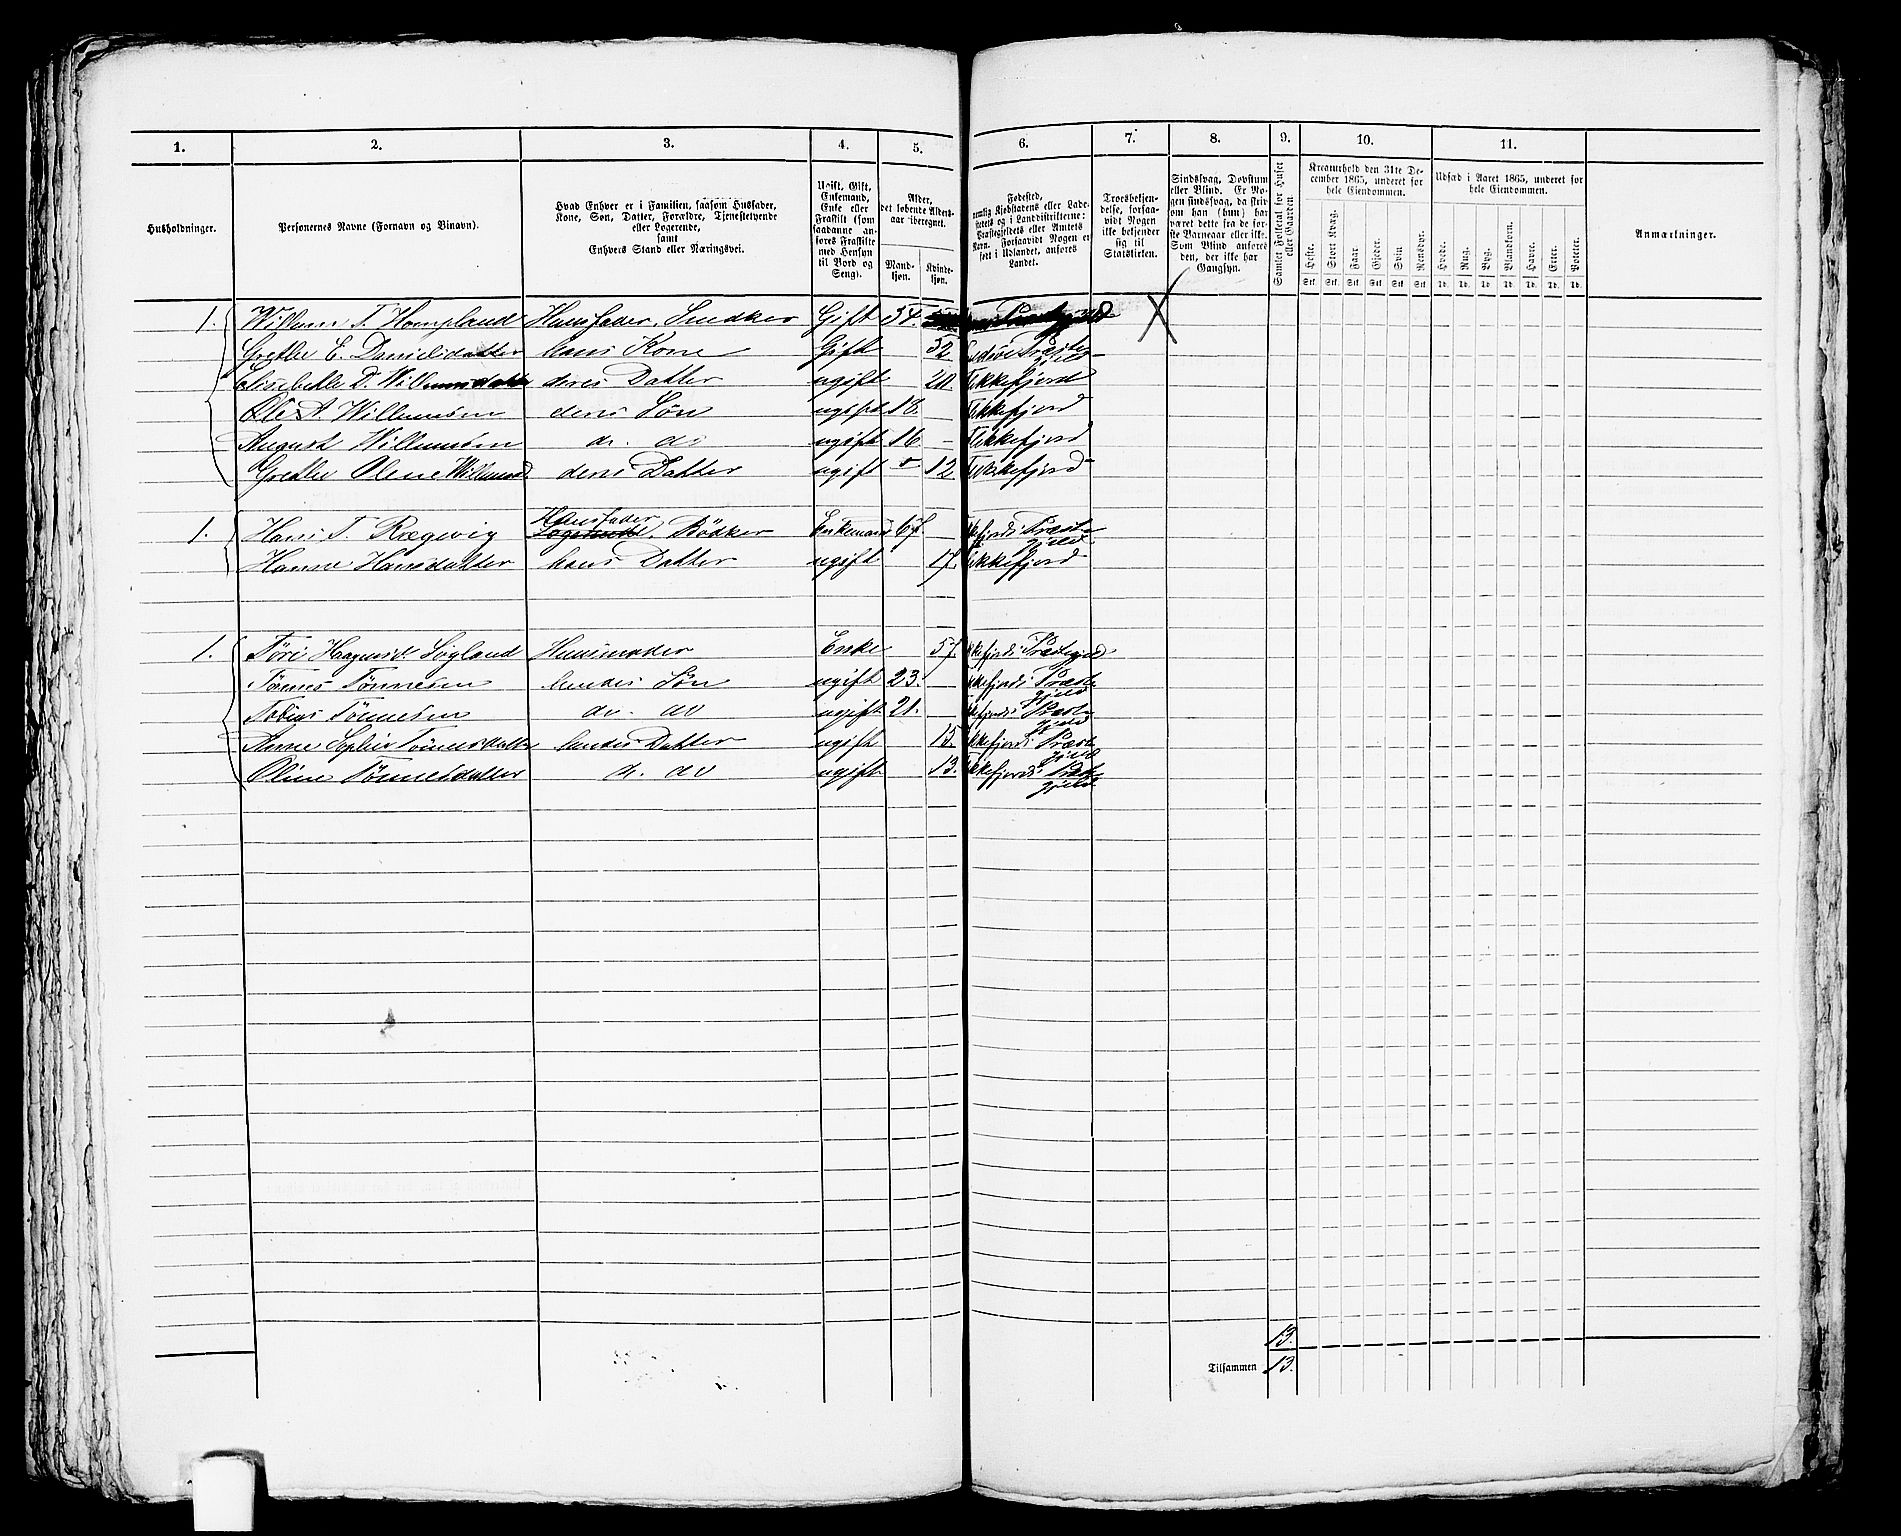 1. 2. 3. 4. 5. 6. 7. 8. 9. 10. 11.
Husholdninger.
Personernes Navne (Fornavn og Tilnavn).
Hvad Enhver er i Familien, saasom Husfader,
Kone, Søn, Datter, Forældre, Tjenestetyende
eller Logerende,
samt
Enhvers Stand eller Næringsvei.
Ugift, Gift,
Enkemand,
Enke eller
Fraskilt (som
saadanne an-
føres Fraskilte
med Hensyn
til Bord og
Seng).
Alder,
det løbende Alders-
aar iberegnet.
Mand-
kjøn.
Kvinde-
kjøn.
Fødested,
nemlig Kjøbstadens eller Lade-
stedets og i Landdistrikterne:
Præstegjeldets eller Amtets
Navn. Forsaavidt Nogen er
født i Udlandet, anføres
Landet.
Troesbekjen-
delse, forsaa-
vidt Nogen
ikke bekjender
sig til
Statskirken.
Sindssvag, Døvstum
eller Blind. Er No-
gen sindssvag, da skriv
om han (hun) har
været dette fra de før-
ste Barneaar eller ikke.
Som Blind anføres
den, der ikke har
Gangsyn.
Samlet Folketal for Huset
eller Gaarden.
Kreaturhold den 31te De-
cember 1865, underet for
hele Eiendommen.
Heste. Stort Kvæg. Faar. Gjeder. Svin Rensdyr.
Stk. Stk. Stk. Stk. Stk. Stk.
Udsæd i Aaret 1865, underet for
hele Eiendommen.
Hvede. Rug. Byg. Blandkorn. Havre. Erter. Poteter.
Td. Td. Td. Td. Td. Td. Td.
Anmærkninger.
1. Willum T. Hompland Huusfader, Snedker Gift 54. X
Grethe E. Danielsdatter hans Kone Gift 52 Præste-
gjeld
Elisabethe D. Willumsdatter deres Datter ugift 20. Flekkefjord
Ole A. Willumsen deres Søn ugift 18. Flekkefjord
August Willumsen do. do ugift 16 - Flekkefjord
Grethe Oline Willumsd deres Datter ugift " 12 Flekkefjord
Huusfader
1. Hans T. Rægevig Logerende, Bødker Enkemand 67. kefjords Præste-
gjeld
Hanne Hansdatter hans Datter ugift 17. Flekkefjord
1. Huusmoder Enke 57. kkefjords Præstegjeld
Tønnes Tønnesen hendes Søn ugift 23. kkefjords Præste-
gjeld
Tobias Tønnesen do. do ugift 21. kkefjords Præste-
gjeld
Anne Sophie Tønnesdatter hendes Datter ugift 15. kkefjords Præste-
gjeld
Oline Tønnesdatter do. do ugift 13. kkefjords Præste-
gjeld
13.
Tilsammen 13.